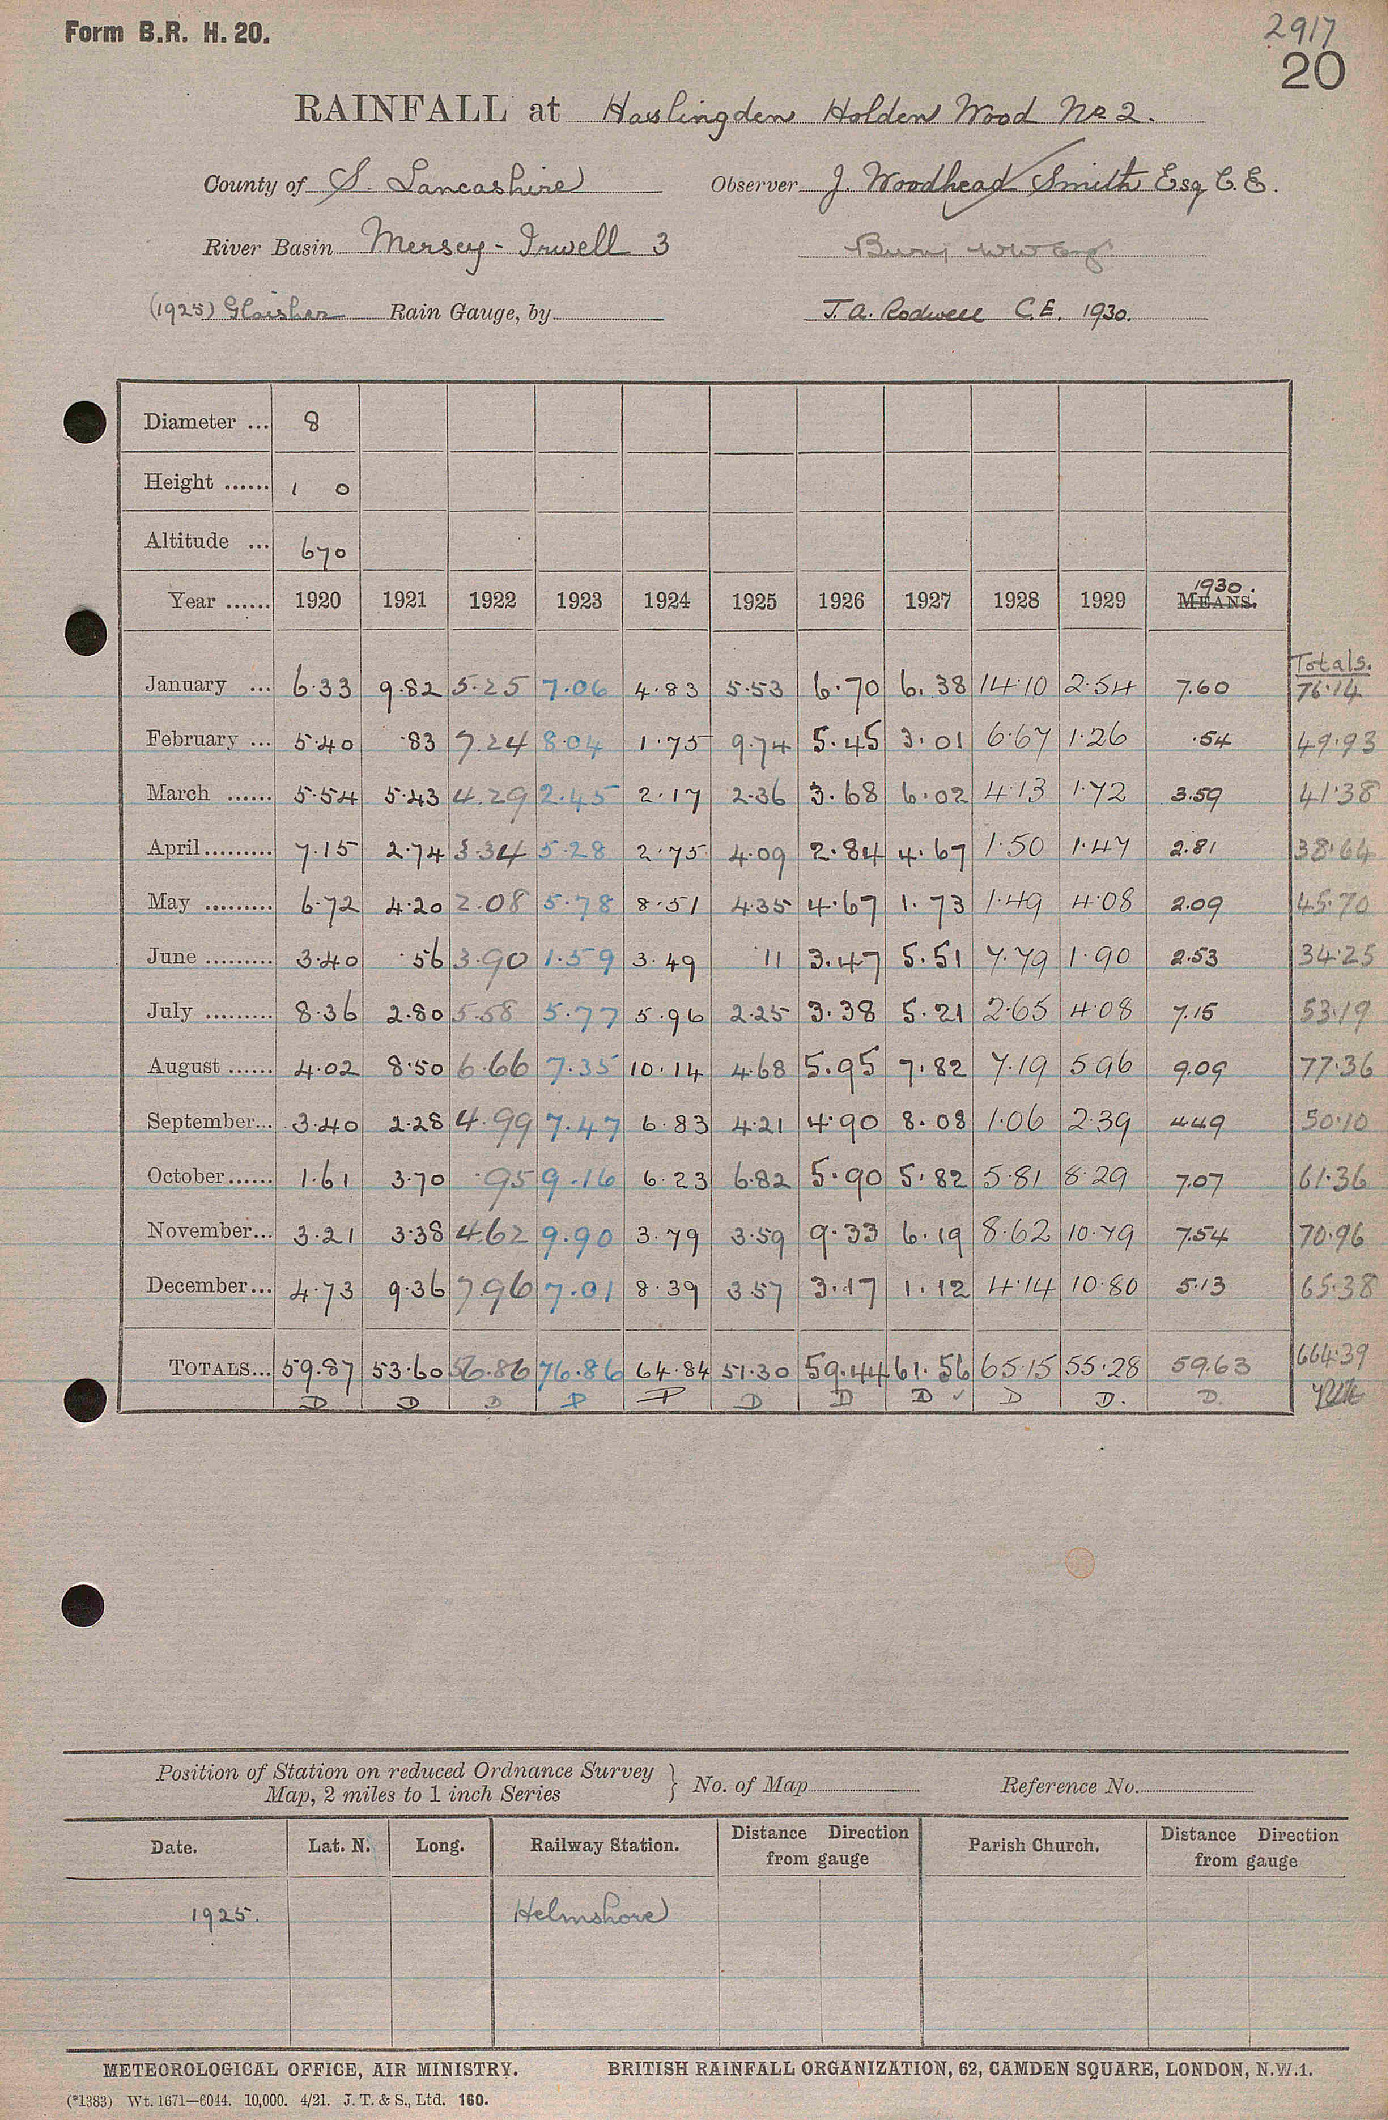 Form B.R. H. 20.
2917
20
RAINFALL at Haslingden Holden Wood No 2.
County of S. Lancashire Observer J. Woodhead Smith Esq C.E.
River Basin Mersey - Irwell 3 Bury
(1925) Glaisher Rain Gauge, by J. A. Rodwell C.E. 1930.
Diameter ... 8
Height ...... 1 0
Altitude ... 670
Year ...... 1920 1921 1922 1923 1924 1925 1926 1927 1928 1929 MEANS. 1930.
Totals.
January ... 6.33 9.82 5.25 7.06 4.83 5.53 6.70 6.38 14.10 2.54 7.60 76.14
February ... 5.40 .83 7.24 8.04 1.75 9.74 5.45 3.01 6.67 1.26 .54 49.93
March ...... 5.54 5.43 4.29 2.45 2.17 2.36 3.68 6.02 4.13 1.72 3.59 41.38
April......... 7.15 2.74 3.34 5.28 2.75 4.09 2.84 4.67 1.50 1.47 2.81 38.64
May ......... 6.72 4.20 2.08 5.78 8.51 4.35 4.67 1.73 1.49 4.08 2.09 45.70
June ......... 3.40 .56 3.90 1.59 3.49 11 3.47 5.51 7.79 1.90 2.53 34.25
July ......... 8.36 2.80 5.58 5.77 5.96 2.25 3.38 5.21 2.65 4.08 7.15 53.19
August ...... 4.02 8.50 6.66 7.35 10.14 4.68 5.95 7.82 7.19 5.96 9.09 77.36
September... 3.40 2.28 4.99 7.47 6.83 4.21 4.90 8.08 1.06 2.39 4.49 50.10
October...... 1.61 3.70 .95 9.16 6.23 6.82 5.90 5.82 5.81 8.29 7.07 61.36
November... 3.21 3.38 4.62 9.90 3.79 3.59 9.33 6.19 8.62 10.79 7.54 70.96
December... 4.73 9.36 7.96 7.01 8.39 3.57 3.17 1.12 4.14 10.80 5.13 65.38
TOTALS... 59.87 53.60 56.86 76.86 64.84 51.30 59.44 61.56 65.15 55.28 59.63 664.39
D D D D D D D D ✓ D D. D.
Position of Station on reduced Ordnance Survey
Map, 2 miles to 1 inch Series } No. of Map Reference No.
Date. Lat. N. Long. Railway Station. Distance Direction from gauge Parish Church. Distance Direction from gauge
1925. Helmshore
METEOROLOGICAL OFFICE, AIR MINISTRY. BRITISH RAINFALL ORGANIZATION, 62, CAMDEN SQUARE, LONDON, N.W.1.
(*1383) Wt. 1671—6044. 10,000. 4/21. J. T. & S., Ltd. 160.